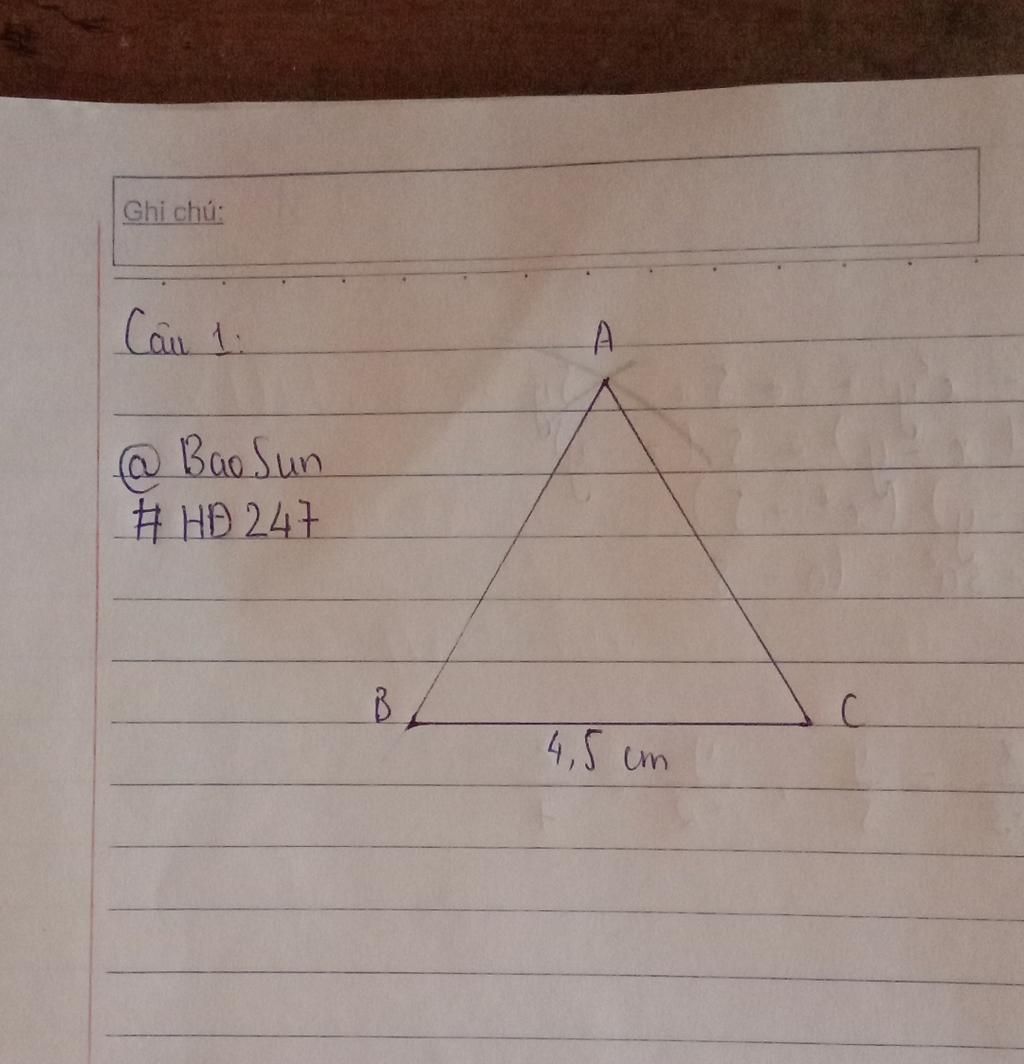 Ghi chú:
Câu 1:
A
@ BaoSun
# HĐ247
B
C
4,5 cm